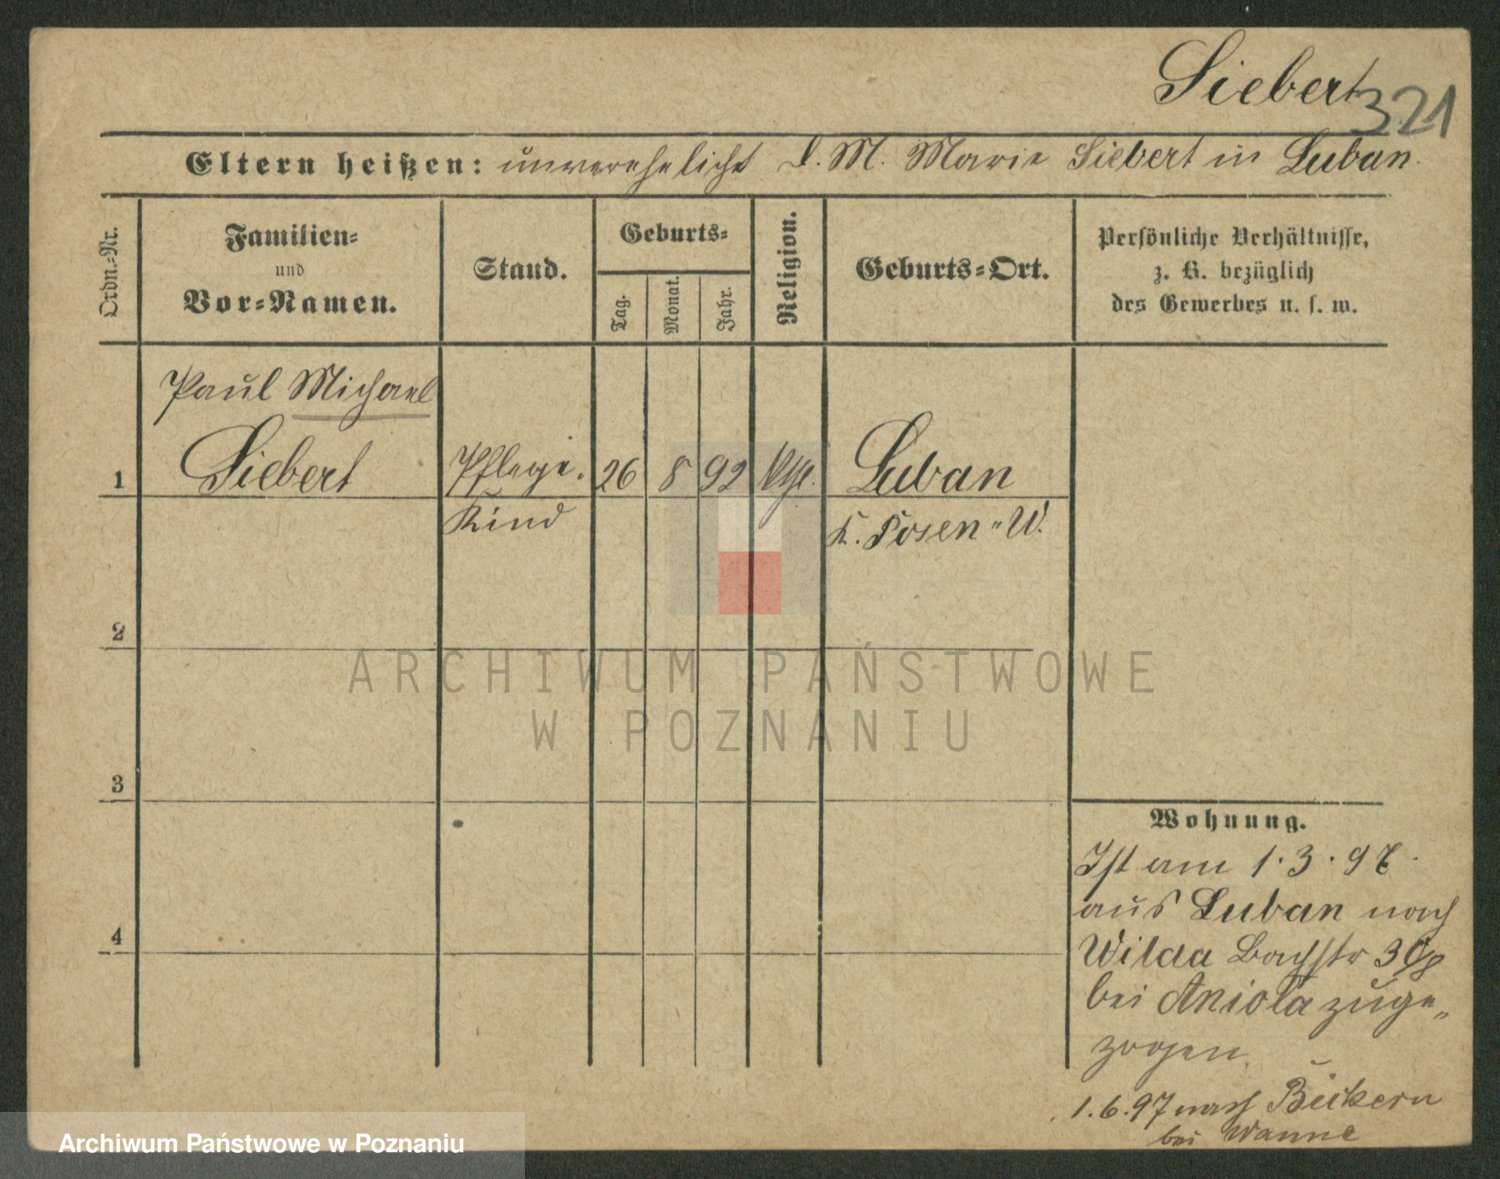 Siebert
321
Eltern heißen: unverehelicht D. M. Marie Siebert in Luban.
Ordn.-Nr.
Familien-
und
Vor-Namen.
Stand.
Geburts-
Tag.
Monat.
Jahr.
Religion.
Geburts-Ort.
Persönliche Verhältnisse,
z. B. bezüglich
des Gewerbes u. s. w.
Paul Michael
1 Siebert Pflege- 26 8 92 Luban
Kind K. Posen-W.
2
3
4
Wohnung.
Ist am 1.3.97
aus Luban nach
Wilda Bachstr
bei Aniola zuge-
zogen.
1.6.97 nach Bickern
bei Wanne
ARCHIWUM PAŃSTWOWE
W POZNANIU
Archiwum Państwowe w Poznaniu